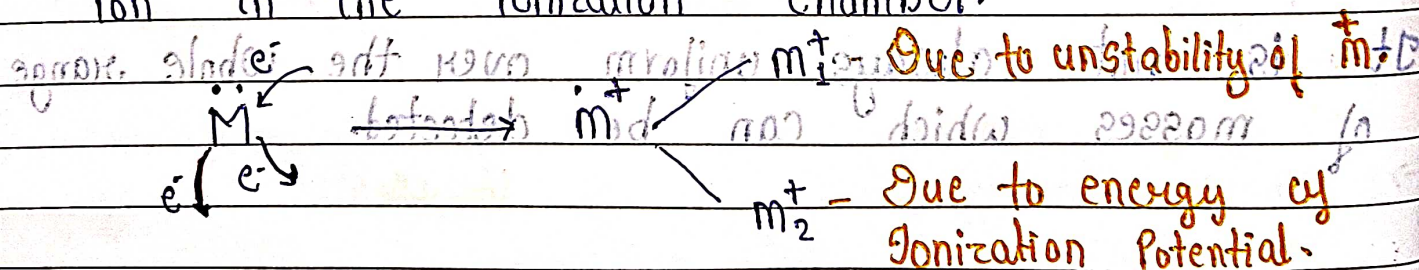 ion in the ionization chamber.
e⁻
M̈ → ṁ⁺
e⁻ e⁻
m₁⁺ - Due to unstability of ṁ⁺
m₂⁺ - Due to energy of
Ionization Potential.